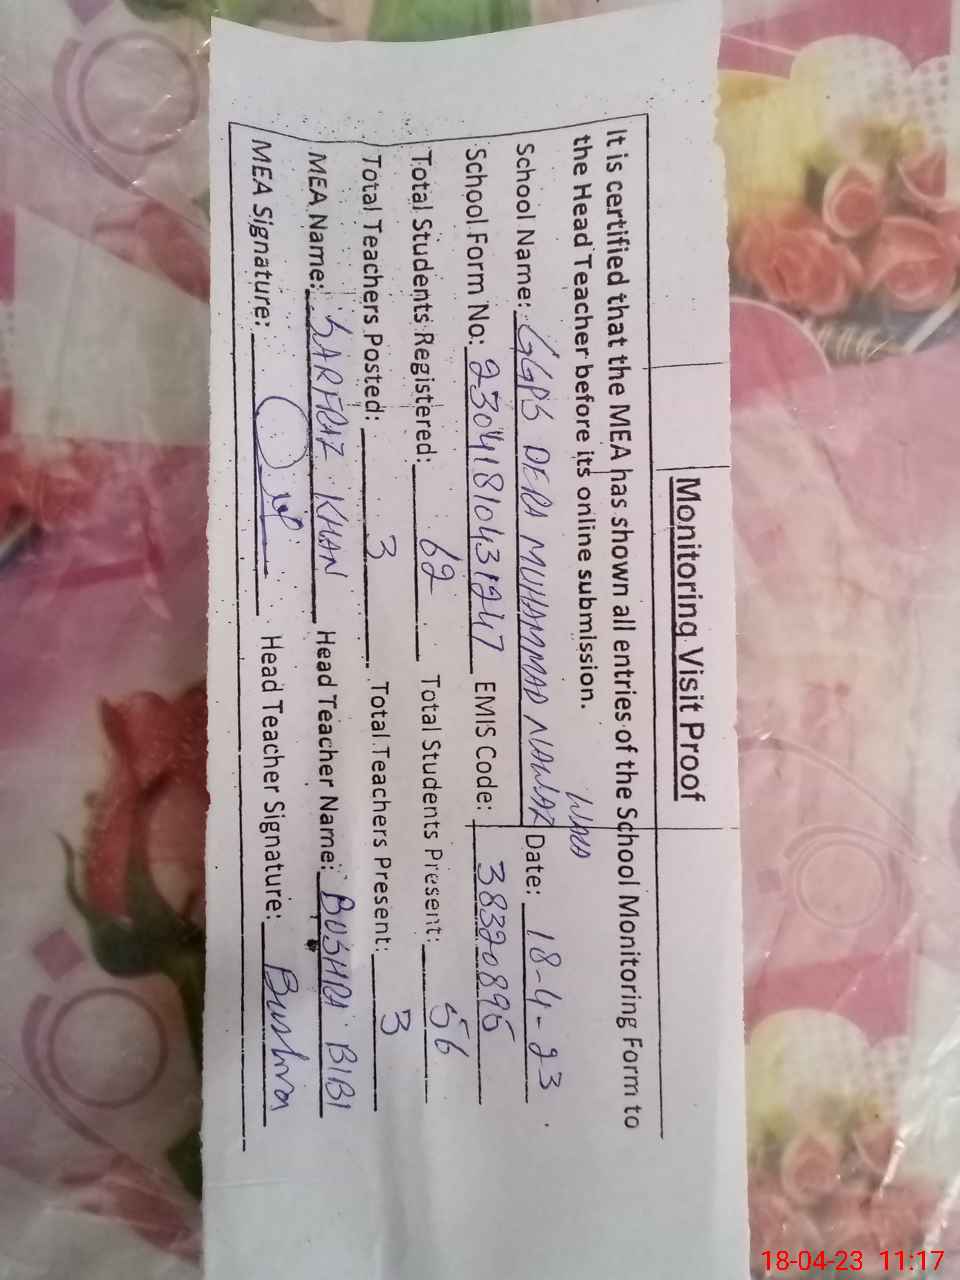 Monitoring Visit Proof
It is certified that the MEA has shown all entries of the School Monitoring Form to
the Head Teacher before its online submission.
WALA
School Name: GGPS DERA MUHAMMAD NAWAZ Date: 18-4-23
School Form No: 23041810431247 EMIS Code: 38320895
Total Students Registered: 62 Total Students Present: 56
Total Teachers Posted: 3 Total Teachers Present: 3
MEA Name: SARFRAZ KHAN Head Teacher Name: BUSHRA BIBI
MEA Signature: Head Teacher Signature: Bushra
18-04-23 11:17